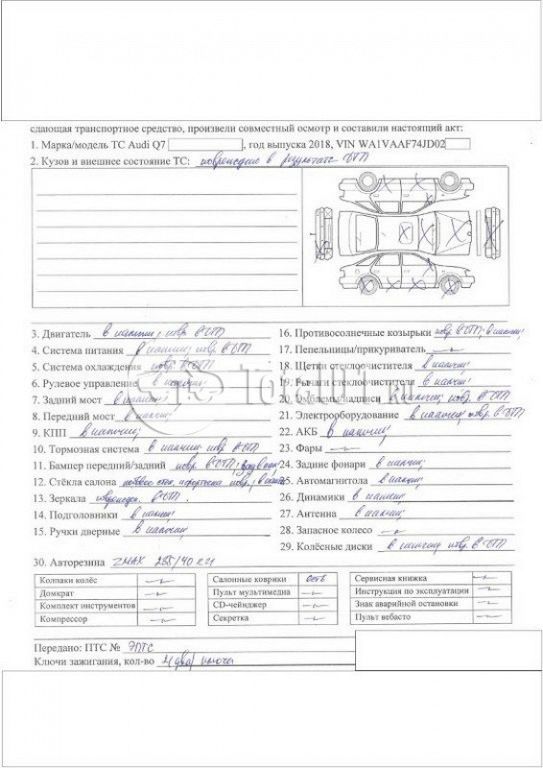 сдающая транспортное средство, произвели совместный осмотр и составили настоящий акт:
1. Марка/модель ТС Audi Q7 , год выпуска 2018, VIN WA1VAAF74JD02
2. Кузов и внешнее состояние ТС: повреждено в результате ДТП
3. Двигатель в наличии, повр. в ДТП
16. Противосолнечные козырьки повр. в ДТП, в наличии;
4. Система питания в наличии; повр. в ДТП
17. Пепельницы/прикуриватель
5. Система охлаждения повр. в ДТП
18. Щетки стеклоочистителя в наличии
6. Рулевое управление в наличии;
19. Рычаги стеклоочистителя в наличии
7. Задний мост в наличии;
20. Эмблемы/надписи в наличии, повр. в ДТП
8. Передний мост в наличии;
21. Электрооборудование в наличии, повр. в ДТП
9. КПП в наличии;
22. АКБ в наличии;
10. Тормозная система в наличии повр. в ДТП
23. Фары
11. Бампер передний/задний повр. в ДТП,
24. Задние фонари в наличии;
12. Стёкла салона
25. Автомагнитола в наличии;
13. Зеркала в ДТП.
26. Динамики в наличии;
14. Подголовники в наличии;
27. Антенна в наличии;
15. Ручки дверные в наличии;
28. Запасное колесо
29. Колёсные диски в наличии повр. в ДТП
30. Авторезина ZMAX 285/40
Колпаки колёс
Салонные коврики есть
Сервисная книжка
Домкрат
Пульт мультимедиа
Инструкция по эксплуатации
Комплект инструментов
CD-чейнджер
Знак аварийной остановки
Компрессор
Секретка
Пульт вебасто
Передано: ПТС № ЭПТС
Ключи зажигания, кол-во (два) ключа